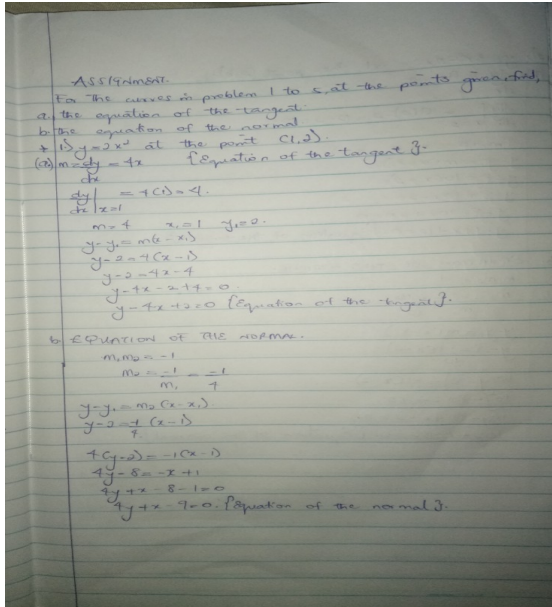 ASSIGNMENT.
For The curves in problem 1 to 5, at the points given, find,
a. the equation of the tangent.
b. the equation of the normal
* 1) y=2x² at the point (1,2).
(a) m=dy/dx = 4x {Equation of the tangent}.
dy/dx|x=1 = 4(1)=4.
m=4 x₁=1 y₁=2.
y-y₁=m(x-x₁)
y-2=4(x-1)
y-2=4x-4
y-4x-2+4=0.
y-4x+2=0 {Equation of the tangent}.
b EQUATION OF THE NORMAL.
m₁m₂=-1
m₂=-1/m₁=-1/4
y-y₁=m₂(x-x₁)
y-2=-1/4(x-1)
4(y-2)=-1(x-1)
4y-8=-x+1
4y+x-8-1=0
4y+x-9=0. {Equation of the normal}.